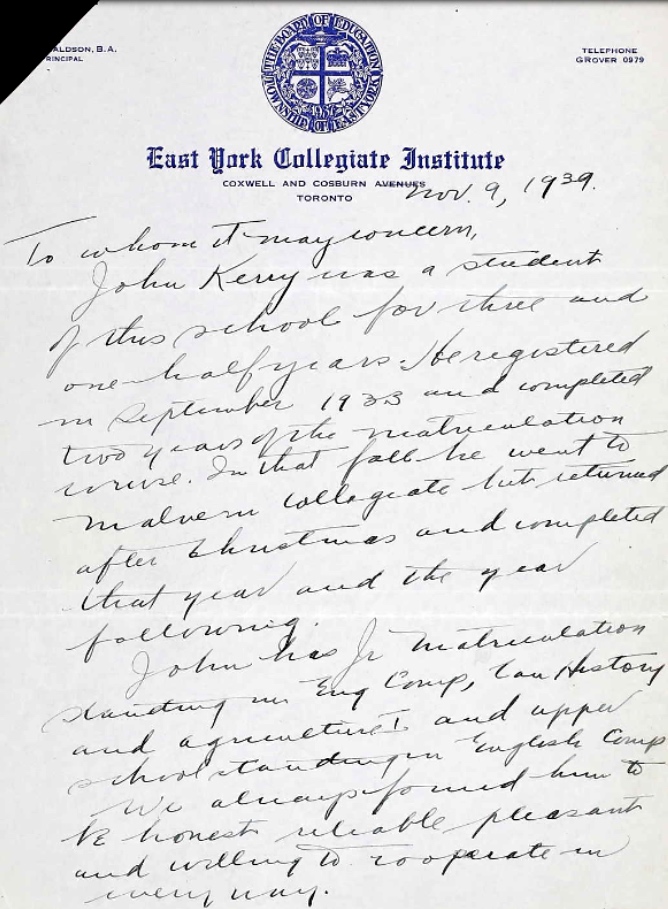 ALDSON, B.A.
RINCIPAL
TELEPHONE
GROVER 0979
THE BOARD OF EDUCATION
TOWNSHIP OF EAST YORK
East York Collegiate Institute
COXWELL AND COSBURN AVENUES
TORONTO
Nov. 9, 1939.
To whom it may concern,
John Kerry was a student
of this school for three and
one-half years. He registered
in September 1933 and completed
two years of the matriculation
course. In that fall he went to
Malvern collegiate but returned
after Christmas and completed
that year and the year
following.
John has Jr Matriculation
standing in Eng Comp, Can History
and agriculture I and upper
school standing in English Comp
We always found him to
be honest reliable pleasant
and willing to cooperate in
every way.